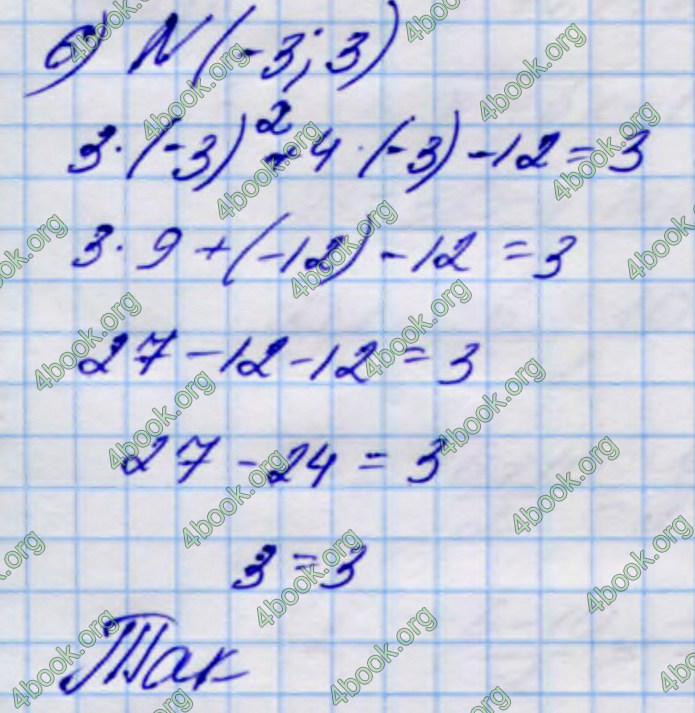 б) N (-3; 3)
3·(-3)² + 4·(-3) - 12 = 3
3·9 + (-12) - 12 = 3
27 - 12 - 12 = 3
27 - 24 = 3
3 = 3
Так
4book.org